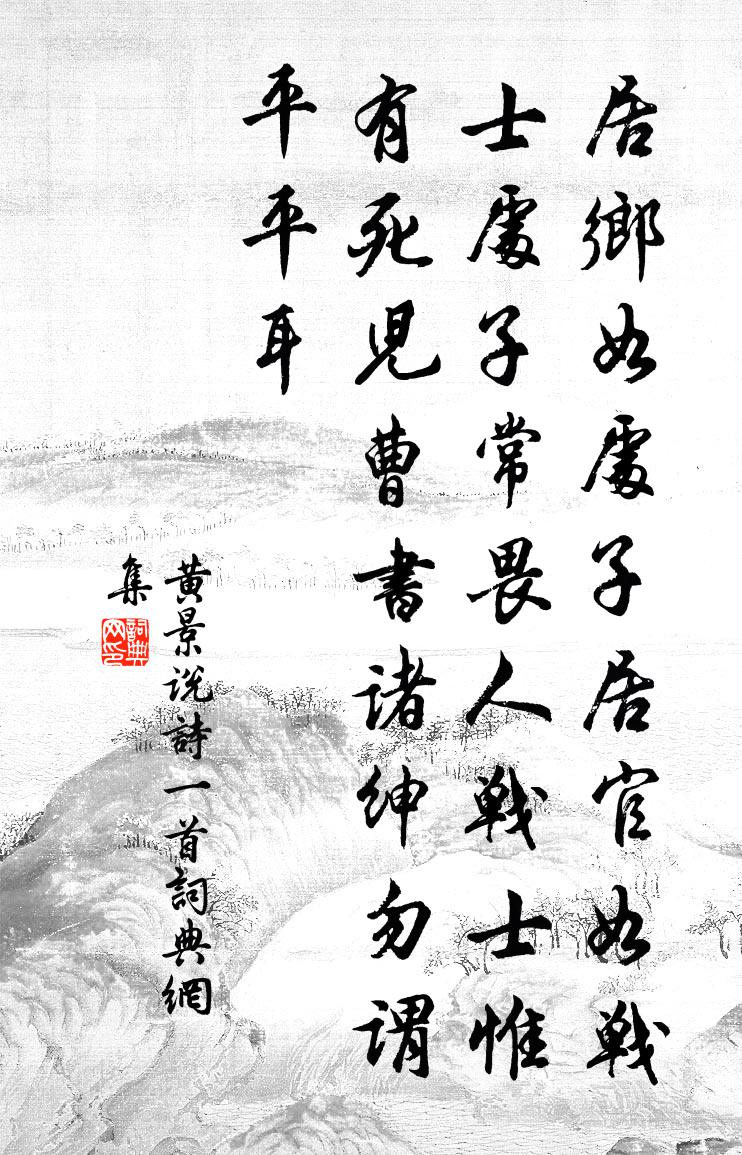 居鄉如處子居官如戰
士處子常畏人戰士惟
有死兒曹書諸紳勿謂
平平耳
黄景说詩一首詞典網
集
詞典
网印